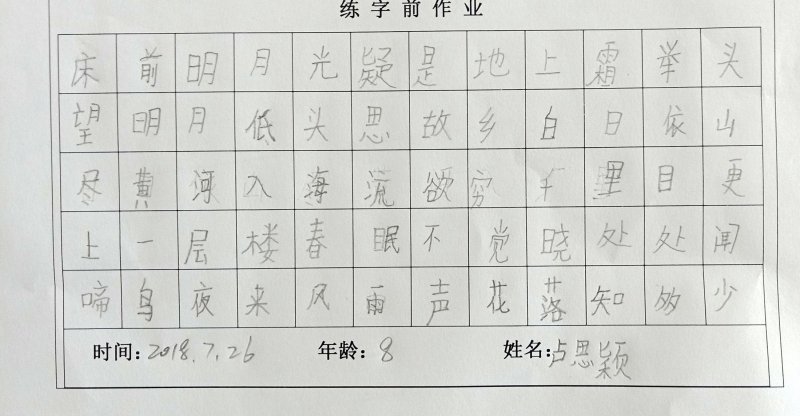 练字前作业
床前明月光疑是地上霜举头
望明月低头思故乡白日依山
尽黄河入海流欲穷千里目更
上一层楼春眠不觉晓处处闻
啼鸟夜来风雨声花落知多少
时间：2018.7.26 年龄：8 姓名：卢思颖